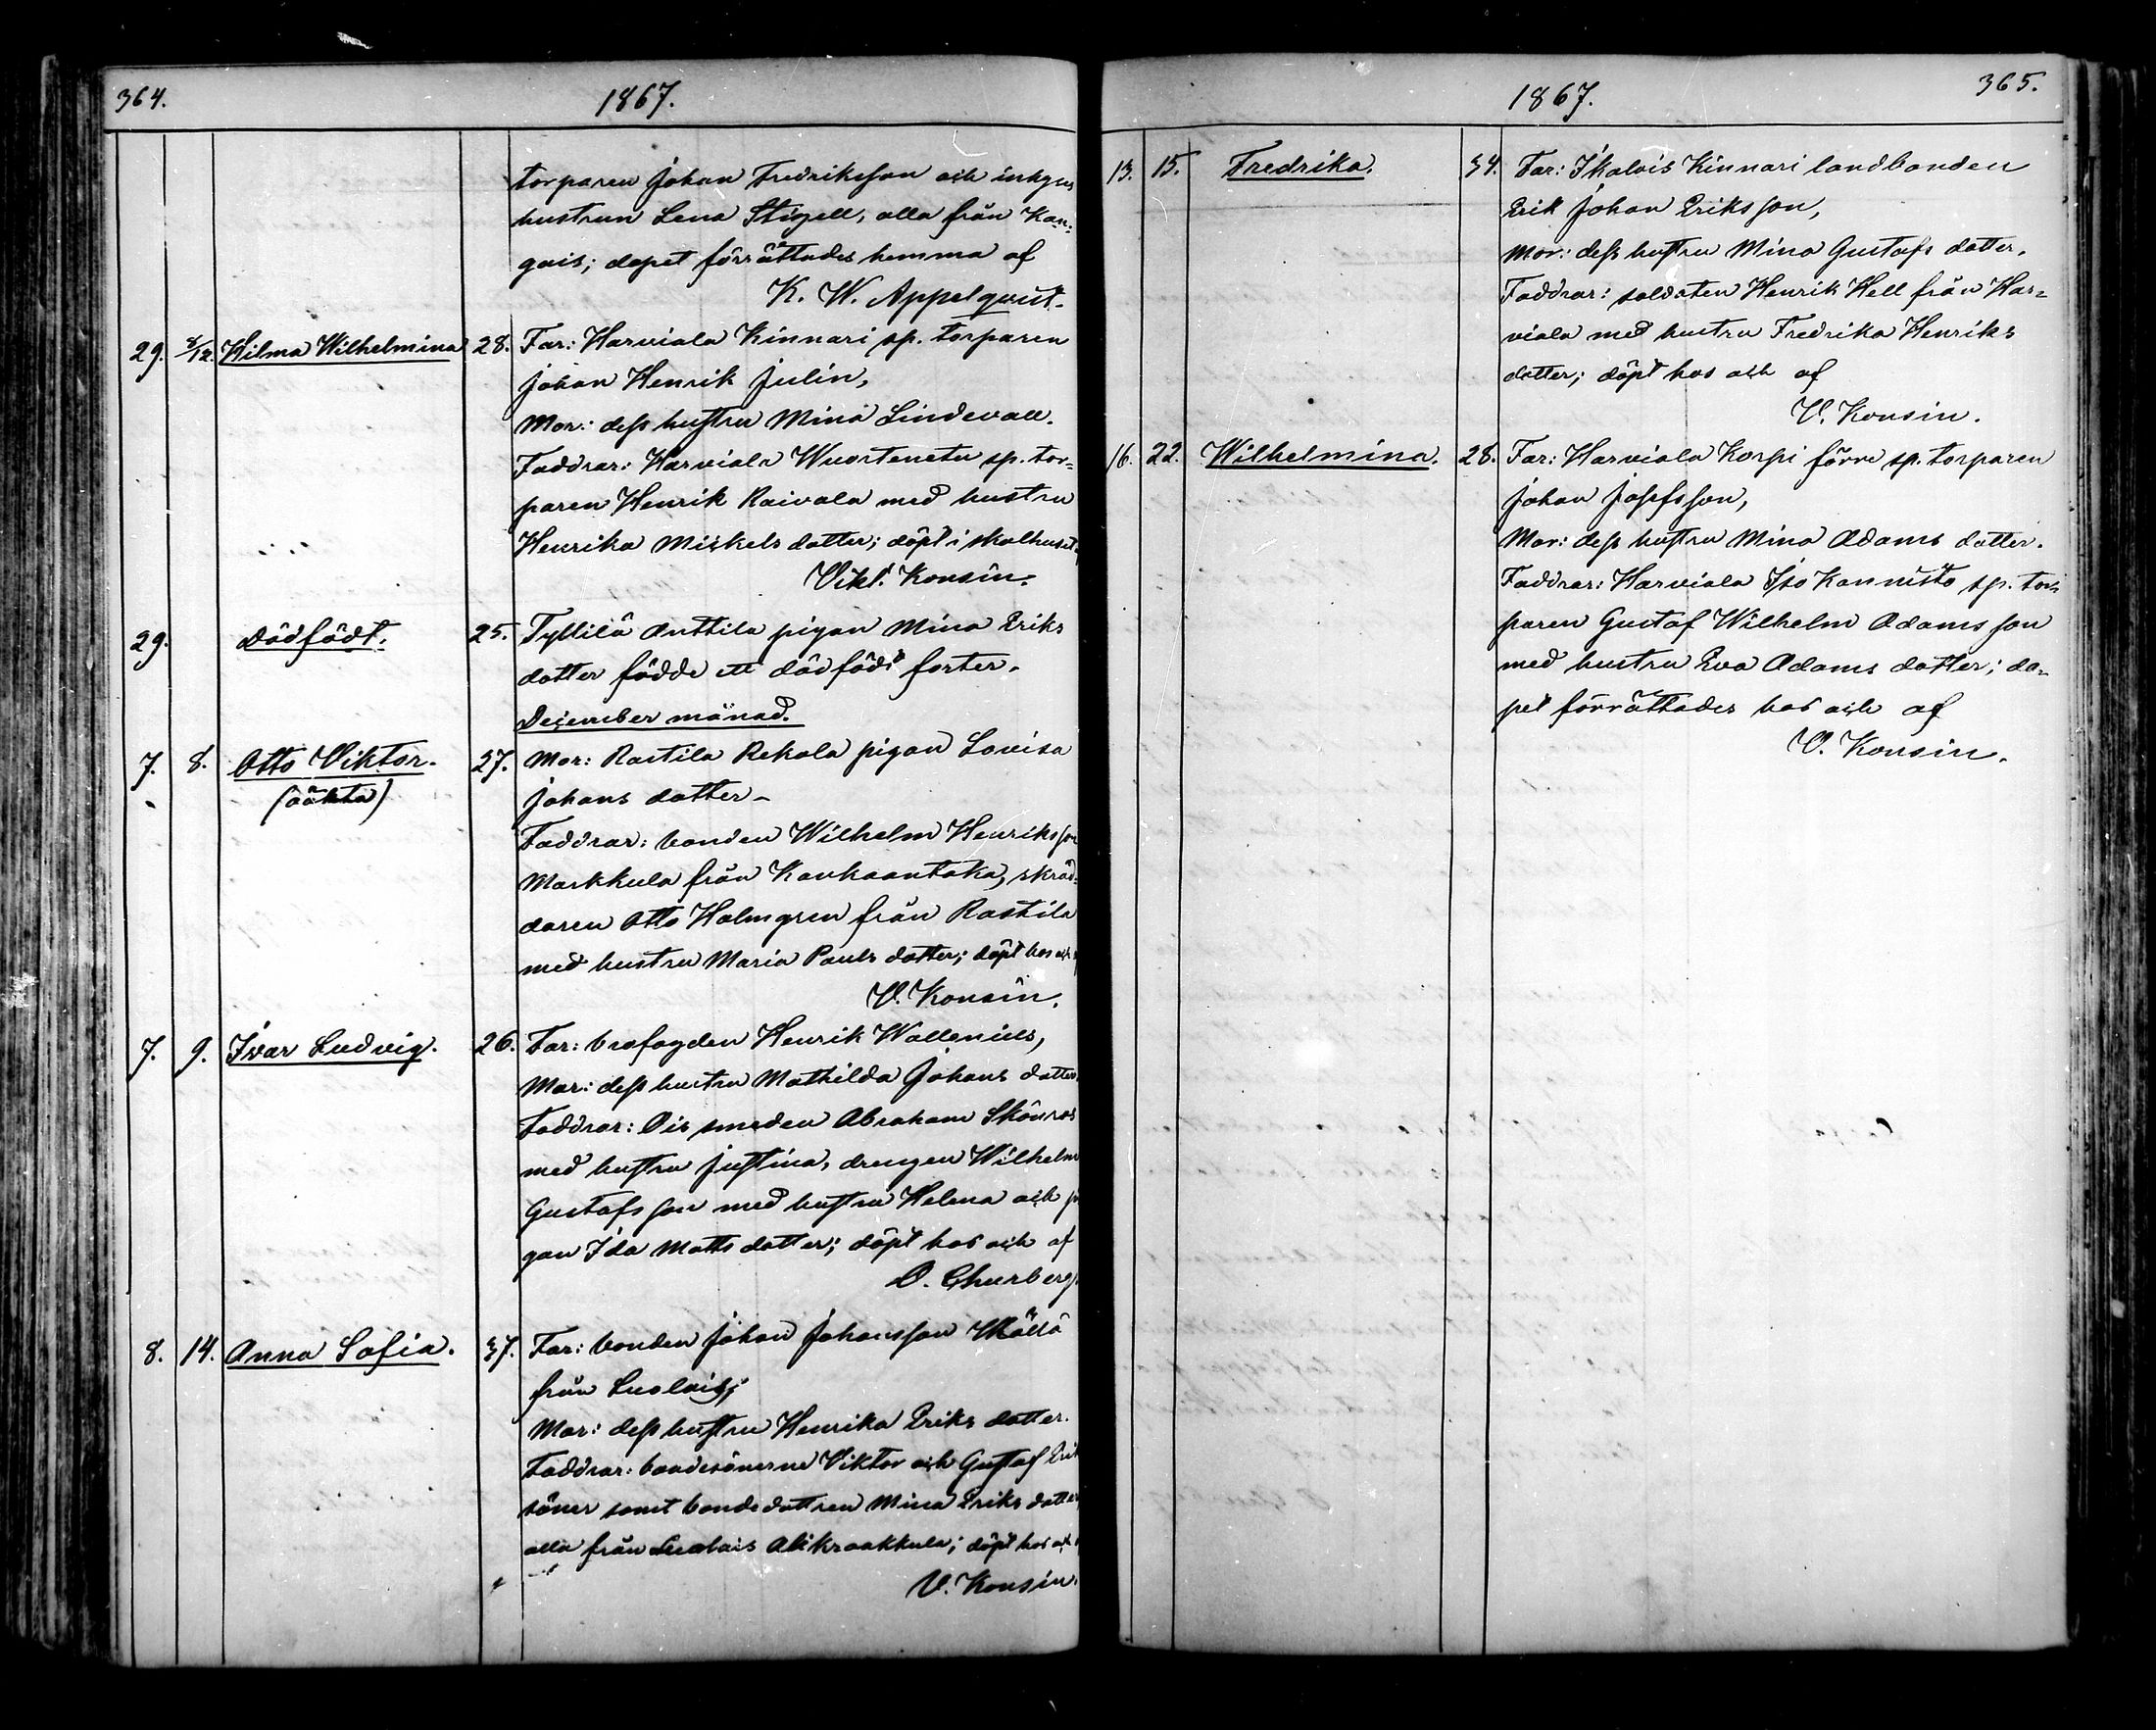 364.
1867.
torparen Johan Fredriksson och inhyses
hustrun Lena Stigell, alla från Kan-
gais; dopet förrättades hemma af
K. W. Appelqvist.
29. 8/12. Hilma Wilhelmina 28. Far: Harviala Kinnari sp. torparen
Johan Henrik Julin,
Mor: dess hustru Mina Lindevall.
Faddrar: Harviala Wuortenetu sp. tor-
paren Henrik Raivala med hustru
Henrika Mickels dotter; döpt i skolhuset
Vikt. Konsin.
29. Dödfödt. 25. Tyllilä Anttila pigan Mina Eriks
dotter födde ett dödfödt foster.
December månad.
7. 8. Otto Viktor. 27. Mor: Rastila Rekola pigan Lovisa
(oäkta) Johans dotter.
Faddrar: bonden Wilhelm Henriksson
Markkula från Kankaantaka, skräd-
daren Otto Holmgren från Rastila
med hustru Maria Pauls dotter; döpt hos och
V. Konsin.
7. 9. Ivar Ludvig. 26. Far: brofogden Henrik Wallenius,
Mor: dess hustru Mathilda Johans dotter.
Faddrar: Ois smeden Abraham Skönros
med hustru Justina, drengen Wilhelm
Gustafsson med hustru Helena och pi
gan Ida Matts dotter; döpt hos och af
O. Churberg.
8. 14. Anna Sofia. 37. Far: bonden Johan Johansson
från Luolais;
Mor: dess hustru Henrika Eriks dotter.
Faddrar: bondesönerne Viktor och Gustaf Erik
söner samt bondedottren Mina Eriks dotter
alla från Luolais Alikraakkula; döpt hos och
V. Konsin.
365.
1867.
13. 15. Fredrika. 34. Far: Ikalois Kinnari landbonden
Erik Johan Eriksson,
Mor: dess hustru Mina Gustafs dotter.
Faddrar: soldaten Henrik Hell från Har-
viala med hustru Fredrika Henriks
dotter; döpt hos och af
V. Konsin.
16. 22. Wilhelmina. 28. Far: Harviala Korpi förre sp. torparen
Johan Josefsson,
Mor: dess hustru Mina Adams dotter.
Faddrar: Harviala Iso Kannisto sp. tor-
paren Gustaf Wilhelm Adamsson
med hustru Eva Adams dotter; do-
pet förrättades hos och af
V. Konsin.